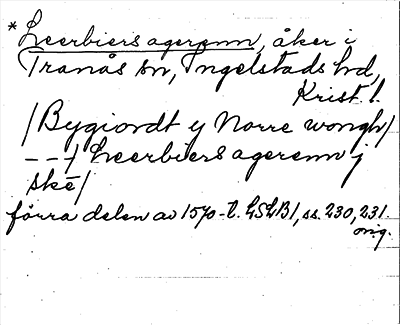 * Leerbiersagerenn, åker i
Tranås sn, Ingelstads hd,
Krist. l.
/Bygiordt y Norre wongh/
---/ Leerbiersagerenn j
skē/
förra delen av 1570-t. LSLB1, ss. 230, 231.
orig.